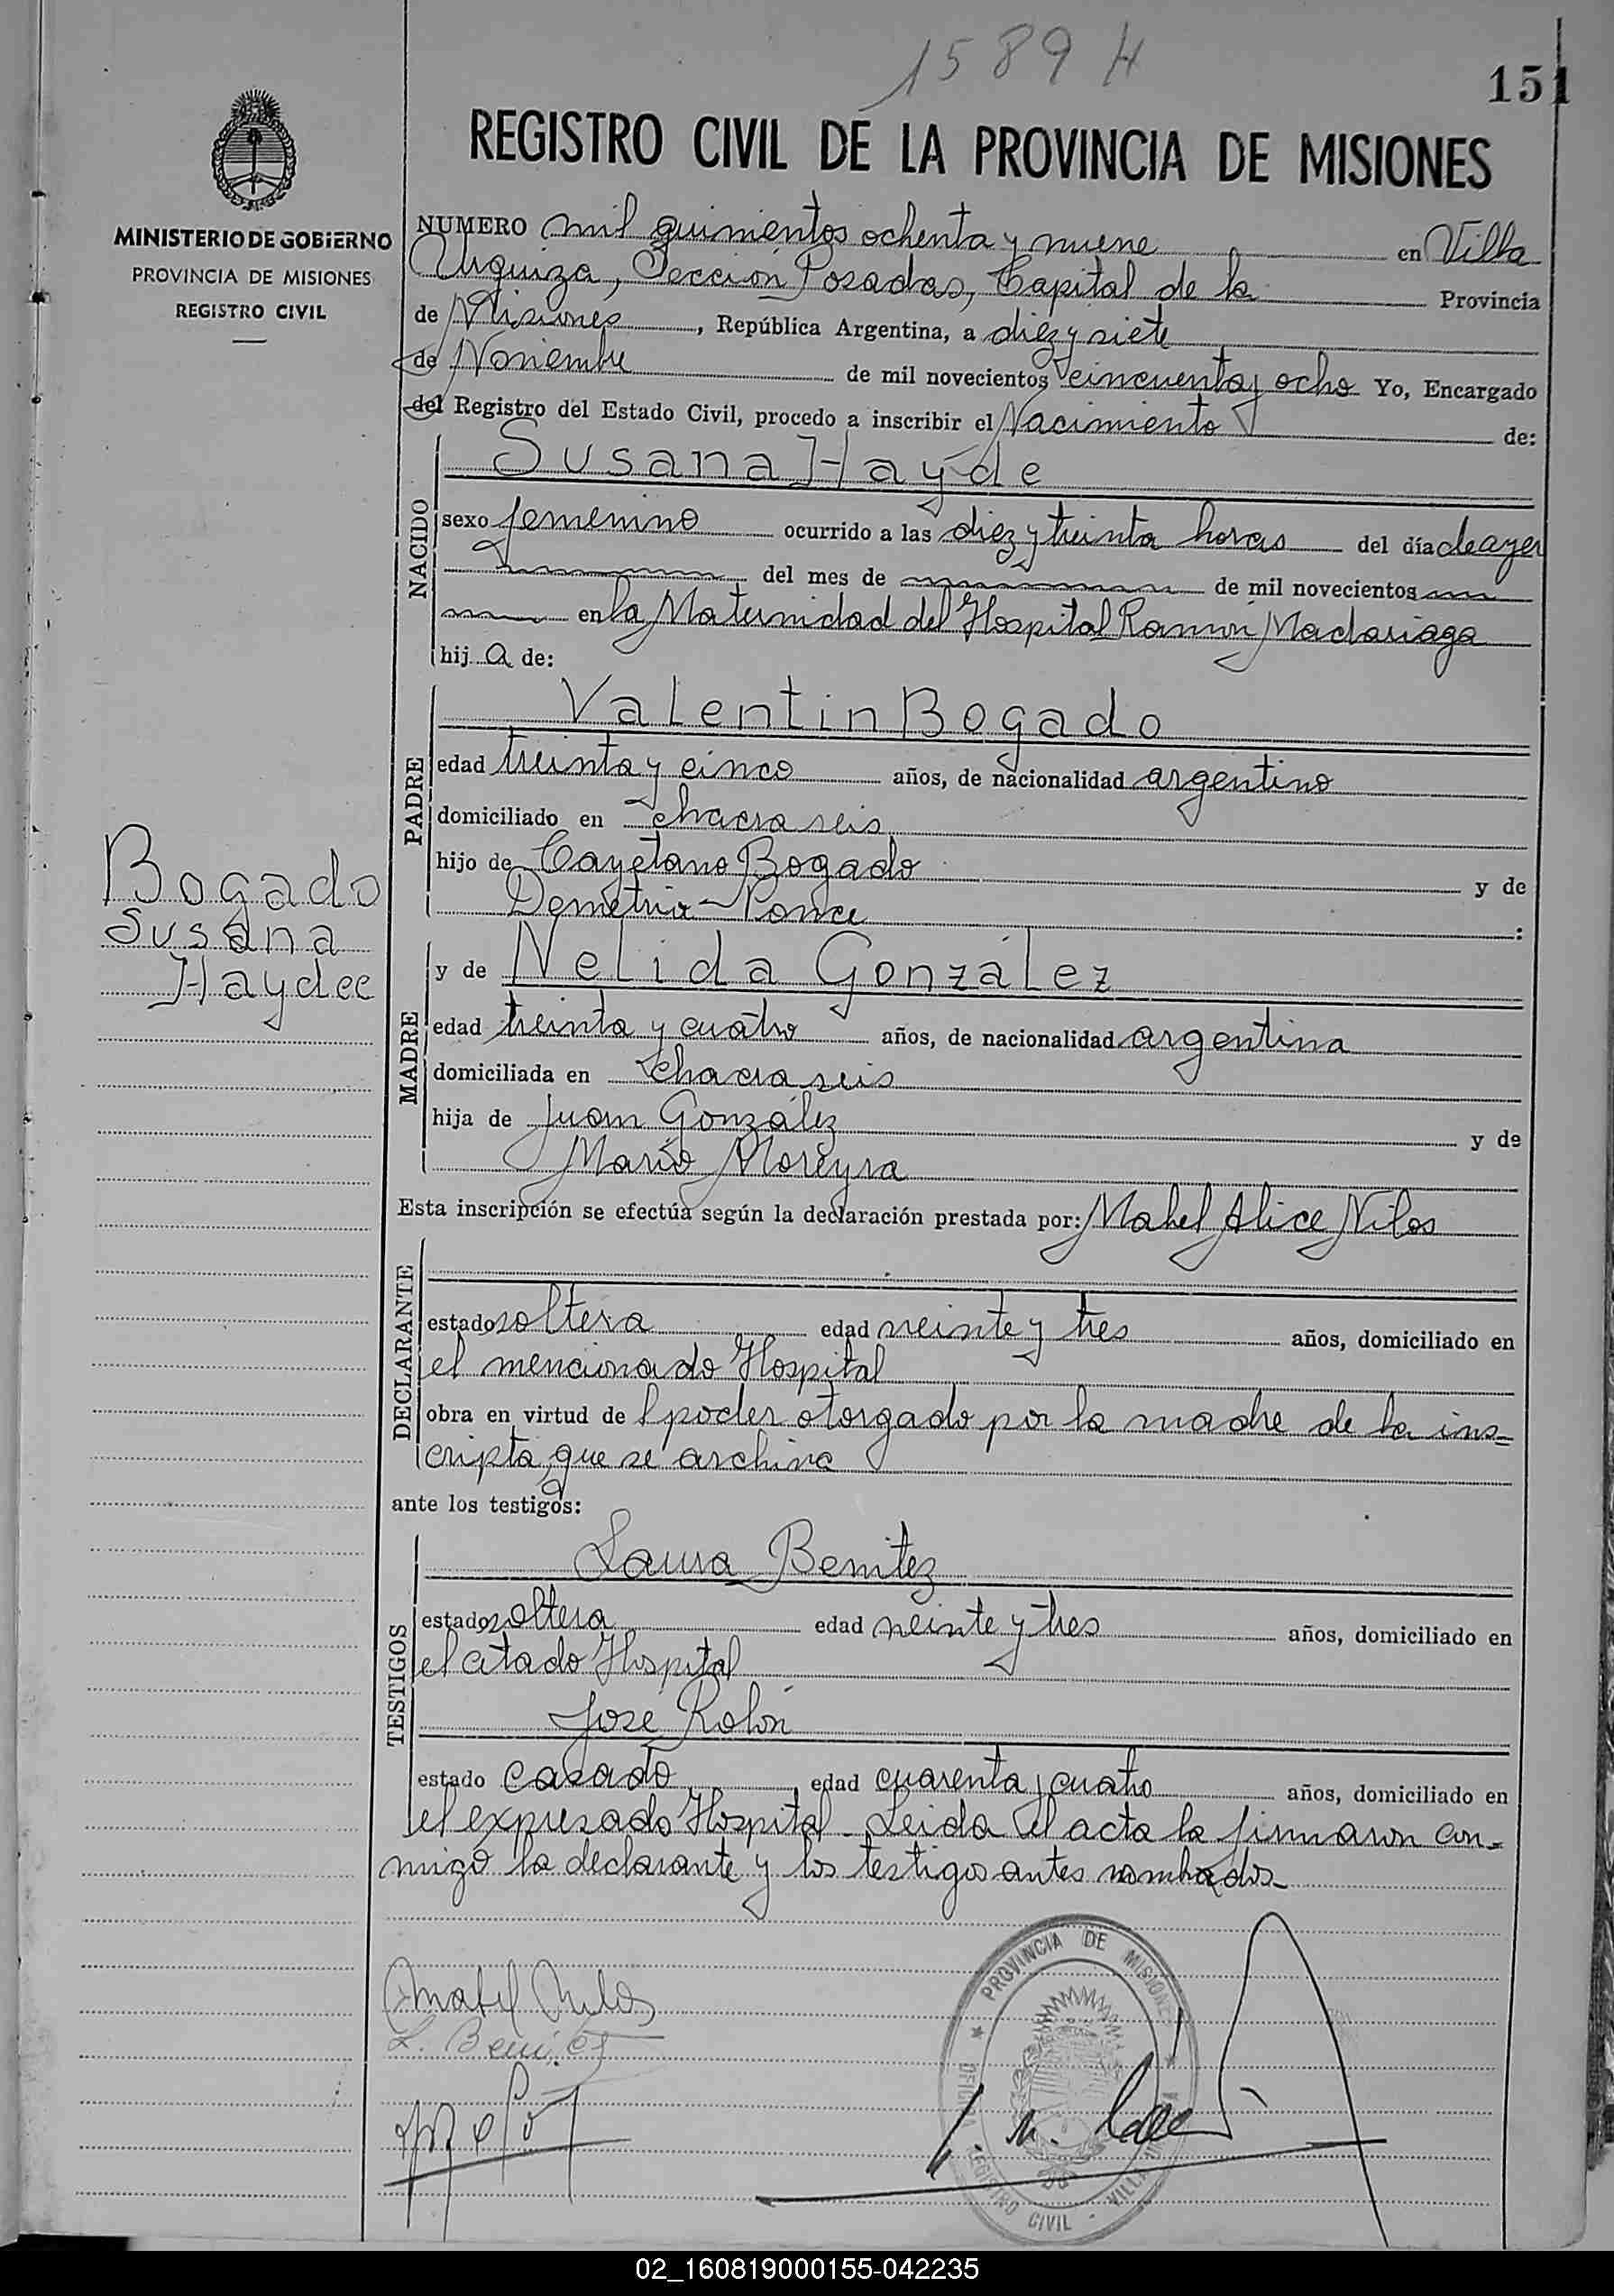 1589 H
151
REGISTRO CIVIL DE LA PROVINCIA DE MISIONES
MINISTERIO DE GOBIERNO
PROVINCIA DE MISIONES
REGISTRO CIVIL
NUMERO mil quinientos ochenta y nueve en Villa
Urquiza, Sección Posadas, Capital de la Provincia
de Misiones, República Argentina, a diez y siete
de Noviembre de mil novecientos cincuenta y ocho Yo, Encargado
del Registro del Estado Civil, procedo a inscribir el Nacimiento de:
NACIDO
Susana Hayde
sexo femenino ocurrido a las diez y treinta horas del día de ayer
del mes de de mil novecientos
en la Maternidad del Hospital Ramón Madariaga
hij a de:
PADRE
Valentin Bogado
edad treinta y cinco años, de nacionalidad argentino
domiciliado en chacra seis
hijo de Cayetano Bogado y de
Demetria Ponce :
Bogado
Susana
Haydee
MADRE
y de Nelida González
edad treinta y cuatro años, de nacionalidad argentina
domiciliada en chacra seis
hija de Juan González y de
María Moreyra
Esta inscripción se efectúa según la declaración prestada por: Mabel Alice Nilos
DECLARANTE
estado soltera edad veinte y tres años, domiciliado en
el mencionado Hospital
obra en virtud de l poder otorgado por la madre de la ins-
cripta, que se archiva
ante los testigos:
TESTIGOS
Laura Benitez
estado soltera edad veinte y tres años, domiciliado en
el citado Hospital
José Rolón
estado casado, edad cuarenta y cuatro años, domiciliado en
el expresado Hospital. Leida el acta la firmaron con-
migo la declarante y los testigos antes nombrados.
L. Benitez
PROVINCIA DE MISIONES
REGISTRO CIVIL
02_160819000155-042235